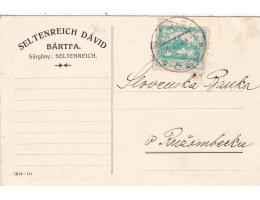 SELTENREICH DÁVID
BÁRTFA.
Sürgöny: SELTENREICH.
Slovenska Banka
v Ružombecku